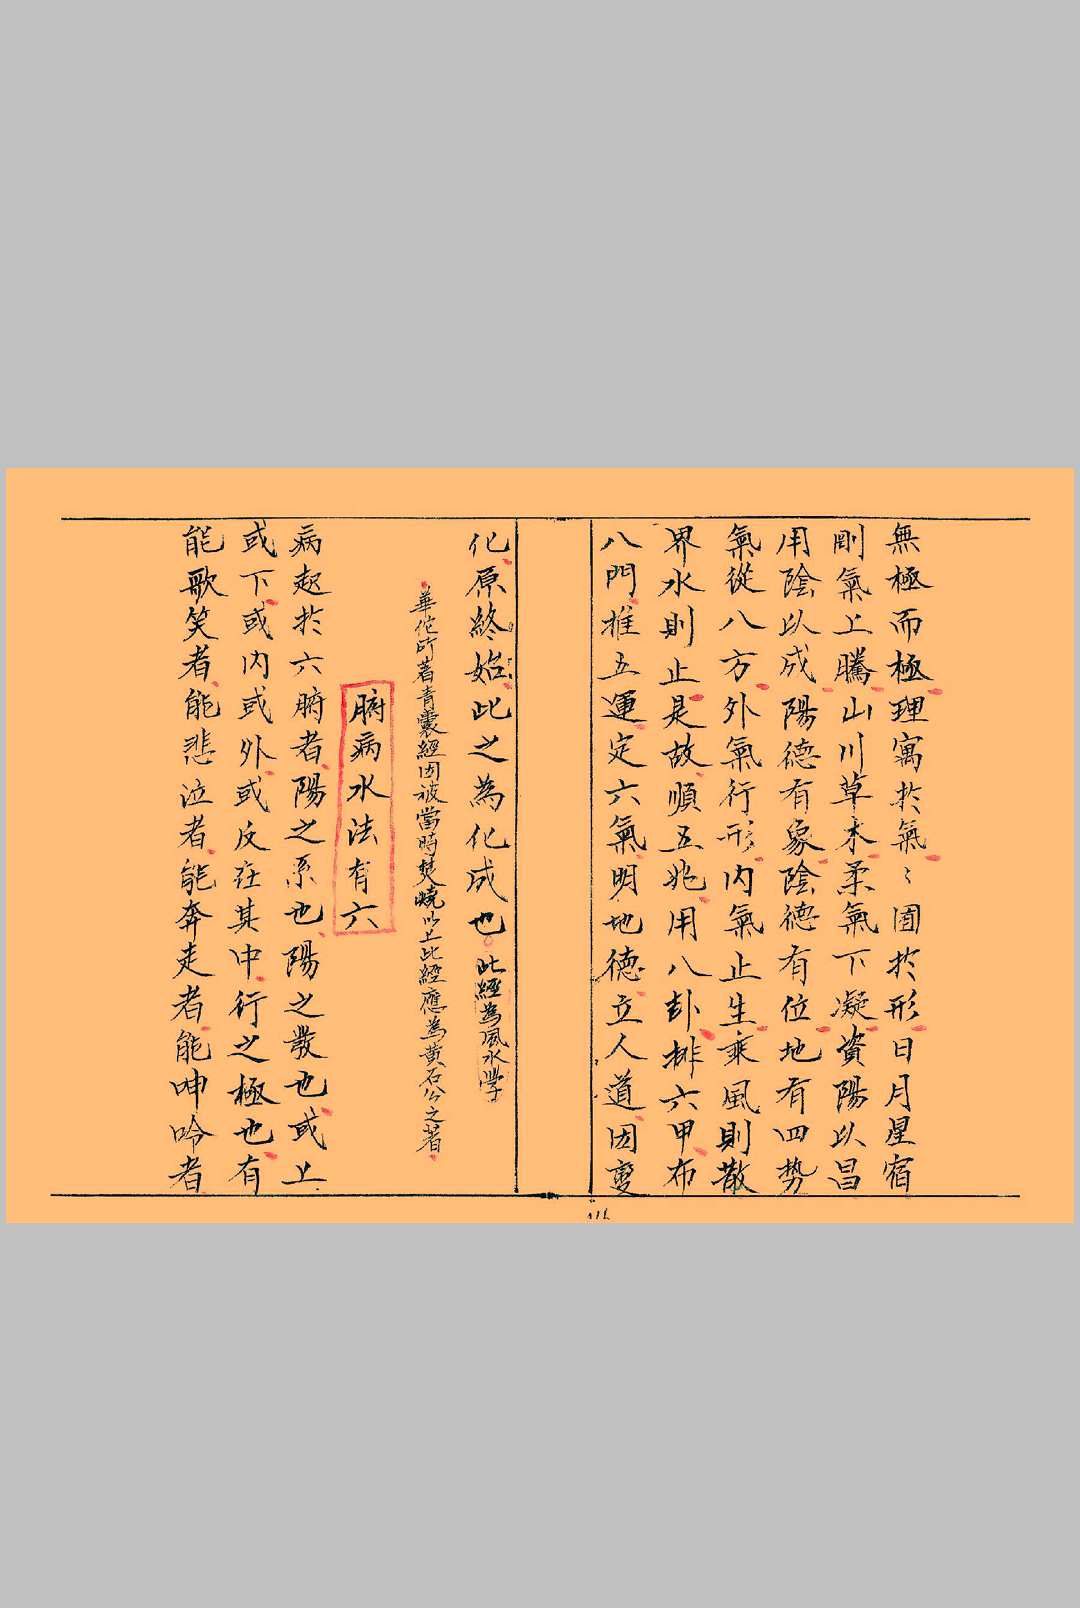 無極而極理寓於氣〻囿於形日月星宿
剛氣上騰山川草木柔氣下凝資陽以昌
用陰以成陽德有象陰德有位地有四势
氣從八方外氣行形内氣止生乘風則散
界水則止是故順五兆用八卦排六甲布
八門推五運定六氣明地德立人道因變
化原終始此之為化成也此經為風水學
華佗所著青囊經因被當時焚燒以上此經應為黄石公之著
腑病水法有六
病起於六腑者陽之系也陽之發也或上
或下或内或外或反在其中行之極也有
能歌笑者能悲泣者能奔走者能呻吟者